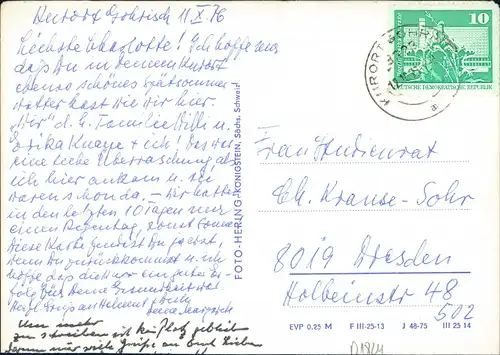 Kurort Gohrisch 11.X.76
Liebste Charlotte! Ich hoffe nur
daß Du in Deinem Kurort
ebenso schönes Spätsommer
wetter hast wie wir hier.
"Wir" d. h. Familie Willi u.
Erika Knaye + ich! Das war
eine liebe Überraschung als
ich hier ankam u. sie
waren schon da. – Wir hatten
in den letzten 10 Tagen nur
einen Regentag, sonst Sonne
Diese Karte findest Du zu Hause,
wenn Du zurückkommst u. ich
hoffe daß die Kur ein guter Er-
folg für Deine Gesundheit war
Herzl. Grüße an Helmut + Dich
Deine
Nun mehr
zu schreiben ist kein Platz geblieben
darum nur viele Grüße an Euch Lieben
FOTO-HERING-KÖNIGSTEIN, Sächs. Schweiz
KURORT GOHRISCH
8323
10
DEUTSCHE DEMOKRATISCHE REPUBLIK
Frau Studienrat
Ch. Krause-Sohr
8019 Dresden
Holbeinstr 48
502
EVP 0.25 M F III-25-13 J 48-75 III 25 14